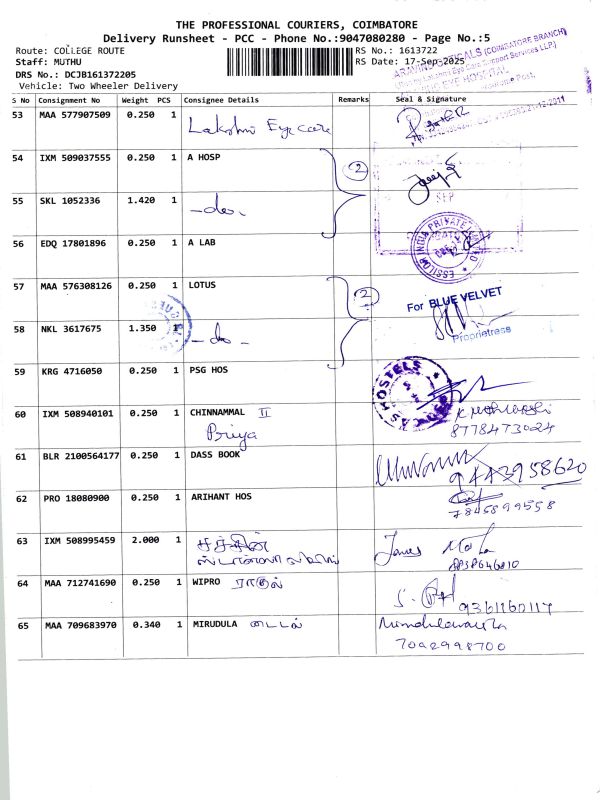 THE PROFESSIONAL COURIERS, COIMBATORE
Delivery Runsheet - PCC - Phone No.:9047080280 - Page No.:5
Route: COLLEGE ROUTE
RS No.: 1613722
Staff: MUTHU
RS Date: 17-Sep-2025
DRS No.: DCJB161372205
Vehicle: Two Wheeler Delivery
S No Consignment No Weight PCS Consignee Details Remarks Seal & Signature
53 MAA 577907509 0.250 1 Lakshmi Eye care
54 IXM 509037555 0.250 1 A HOSP 2
55 SKL 1052336 1.420 1 -do-
56 EDQ 17801896 0.250 1 A LAB
ESSILOR INDIA PRIVATE
57 MAA 576308126 0.250 1 LOTUS 2
For BLUE VELVET
58 NKL 3617675 1.350 1 -do-
Proprietress
59 KRG 4716050 0.250 1 PSG HOS
HOSTELS
60 IXM 508940101 0.250 1 CHINNAMMAL II
Priya 8778473024
61 BLR 2100564177 0.250 1 DASS BOOK
9443958620
62 PRO 18080900 0.250 1 ARIHANT HOS
7845899558
63 IXM 508995459 2.000 1 James
64 MAA 712741690 0.250 1 WIPRO
9361160117
65 MAA 709683970 0.340 1 MIRUDULA
7092998700